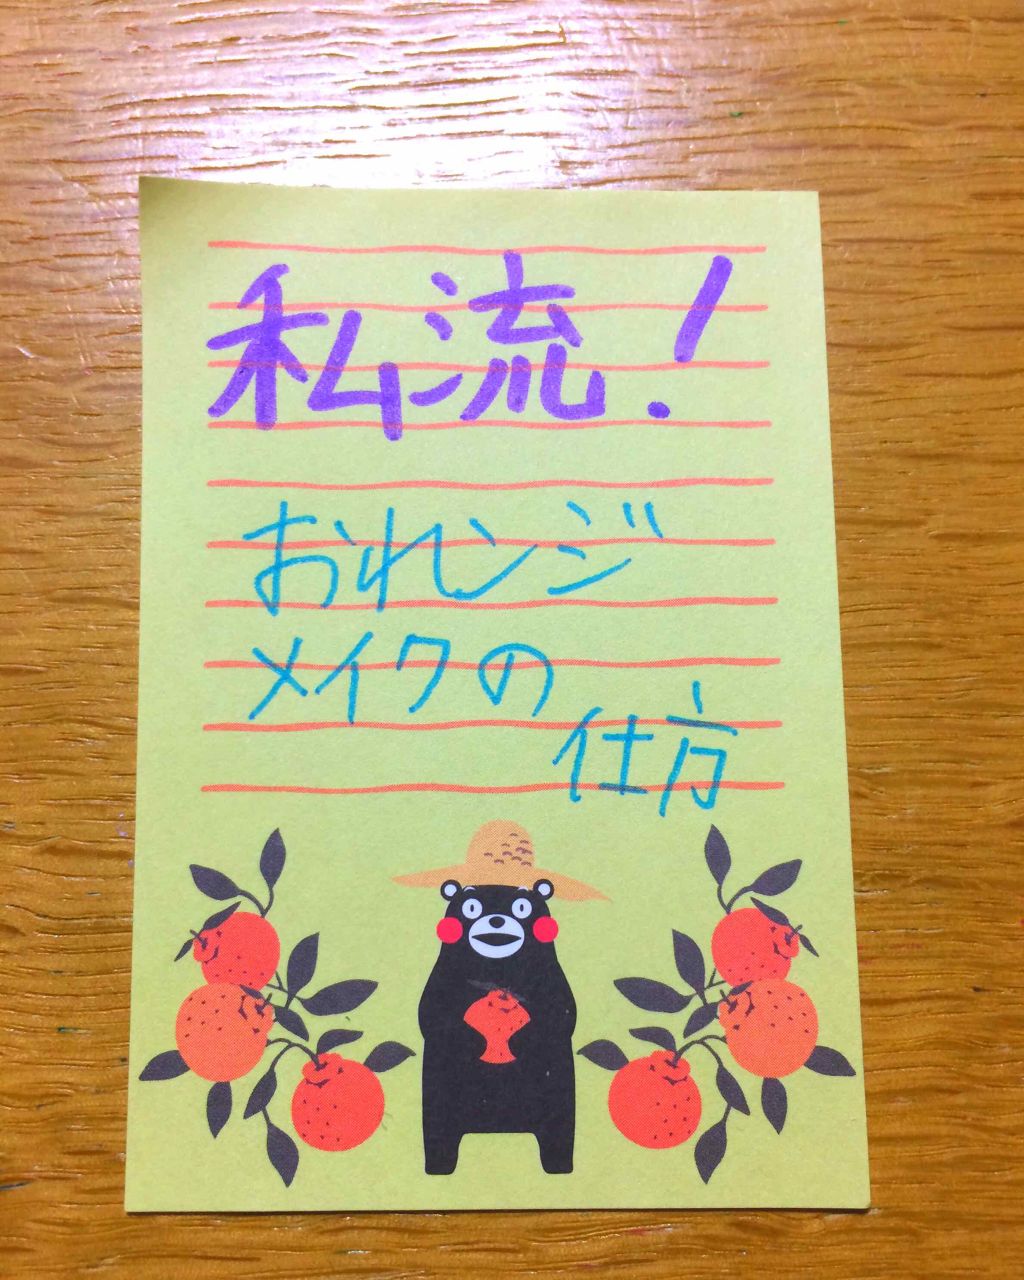 私流!
おれンジ
メイクの
仕方